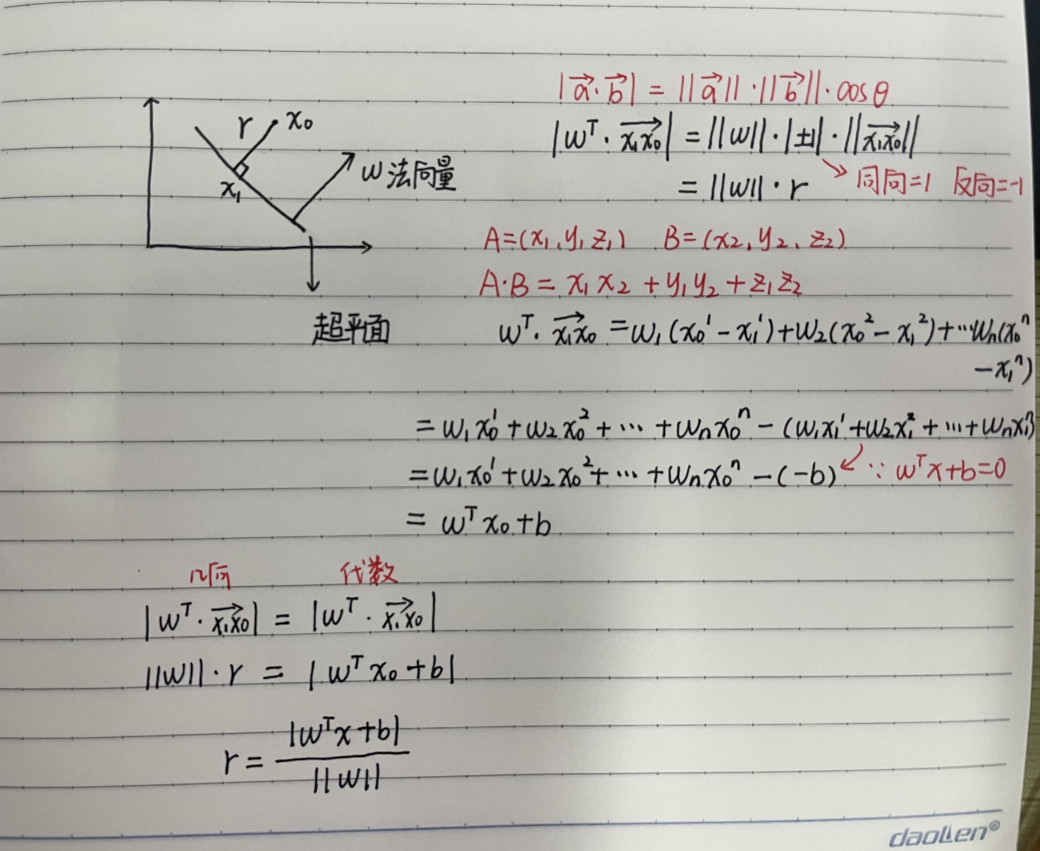 |a⃗·b⃗| = ||a⃗||·||b⃗||·cosθ
r x₀
|wᵀ·x₁x₀⃗| = ||w||·|±1|·||x₁x₀⃗||
x₁ w 法向量
= ||w||·r → 同向=1 反向=-1
A=(x₁, y₁, z₁) B=(x₂, y₂、z₂)
A·B = x₁x₂ + y₁y₂ + z₁z₂
超平面
wᵀ·x₁x₀⃗ = w₁(x₀¹-x₁¹)+w₂(x₀²-x₁²)+…wₙ(x₀ⁿ
-x₁ⁿ)
= w₁x₀¹+w₂x₀²+…+wₙx₀ⁿ-(w₁x₁¹+w₂x₁²+…+wₙx₁ⁿ)
= w₁x₀¹+w₂x₀²+…+wₙx₀ⁿ-(-b) ∵ wᵀx+b=0
= wᵀx₀+b
几何 代数
|wᵀ·x₁x₀⃗| = |wᵀ·x₁x₀⃗|
||w||·r = |wᵀx₀+b|
r = |wᵀx+b| / ||w||
daollen®